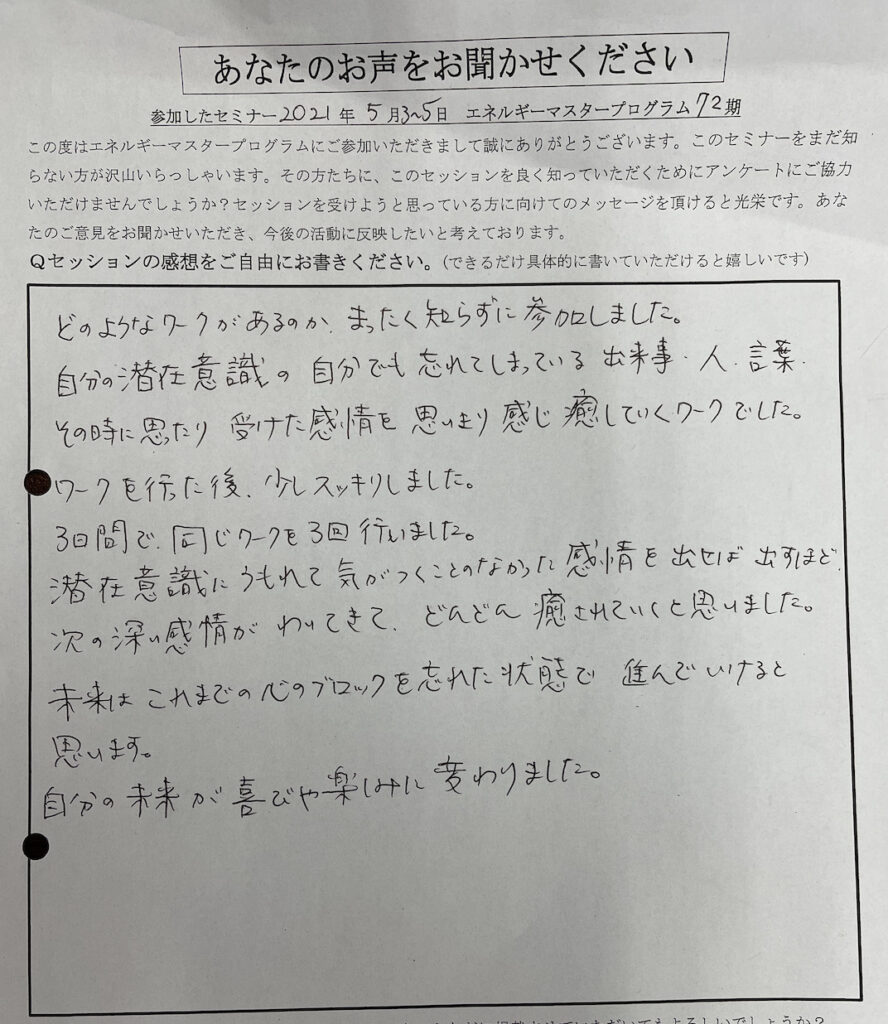 あなたのお声をお聞かせください
参加したセミナー2021年 5月3~5日 エネルギーマスタープログラム72期
この度はエネルギーマスタープログラムにご参加いただきまして誠にありがとうございます。このセミナーをまだ知
らない方が沢山いらっしゃいます。その方たちに、このセッションを良く知っていただくためにアンケートにご協力
いただけませんでしょうか？セッションを受けようと思っている方に向けてのメッセージを頂けると光栄です。あな
たのご意見をお聞かせいただき、今後の活動に反映したいと考えております。
Qセッションの感想をご自由にお書きください。(できるだけ具体的に書いていただけると嬉しいです)
どのようなワークがあるのか、まったく知らずに参加しました。
自分の潜在意識の 自分でも忘れてしまっている 出来事・人・言葉・
その時に思ったり 受けた感情を 思いきり 感じ 癒していくワークでした。
ワークを行った後、少しスッキリしました。
3日間で、同じワークを3回行いました。
潜在意識にうもれて 気がつくことのなかった 感情を 出せば 出すほど、
次の深い感情が わいてきて、どんどん 癒されていくと思いました。
未来は これまでの心のブロックを忘れた状態で 進んでいけると
思います。
自分の未来が 喜びや楽しみに変わりました。
よろしいでしょうか？